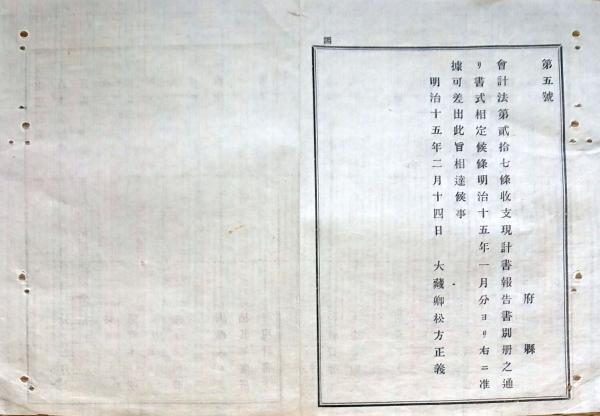 第五號
府縣
會計法第貳拾七條收支現計書報告書別册之通
リ書式相定候條明治十五年一月分ヨリ右ニ准
據可差出此旨相達候事
明治十五年二月十四日 大藏卿松方正義